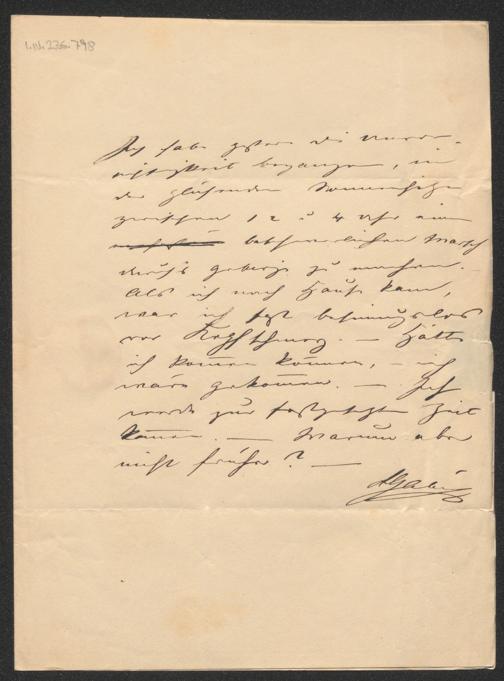 I.N. 236.798
Ich habe gestern die Unvor-
sichtigkeit begangen, in
der glühenden Sonnenhitze
zwischen 12 u 4 Uhr einen
beschwerlichen Marsch
durch's Gebirge zu machen. –
Als ich nach Hause kam,
war ich fast besinnungslos
vor Kopfschmerz. – Hätte
ich kommen können, – ich
wäre gekommen. – Ich
werde zur festgesetzten Zeit
kommen. – Warum aber
nicht früher? –